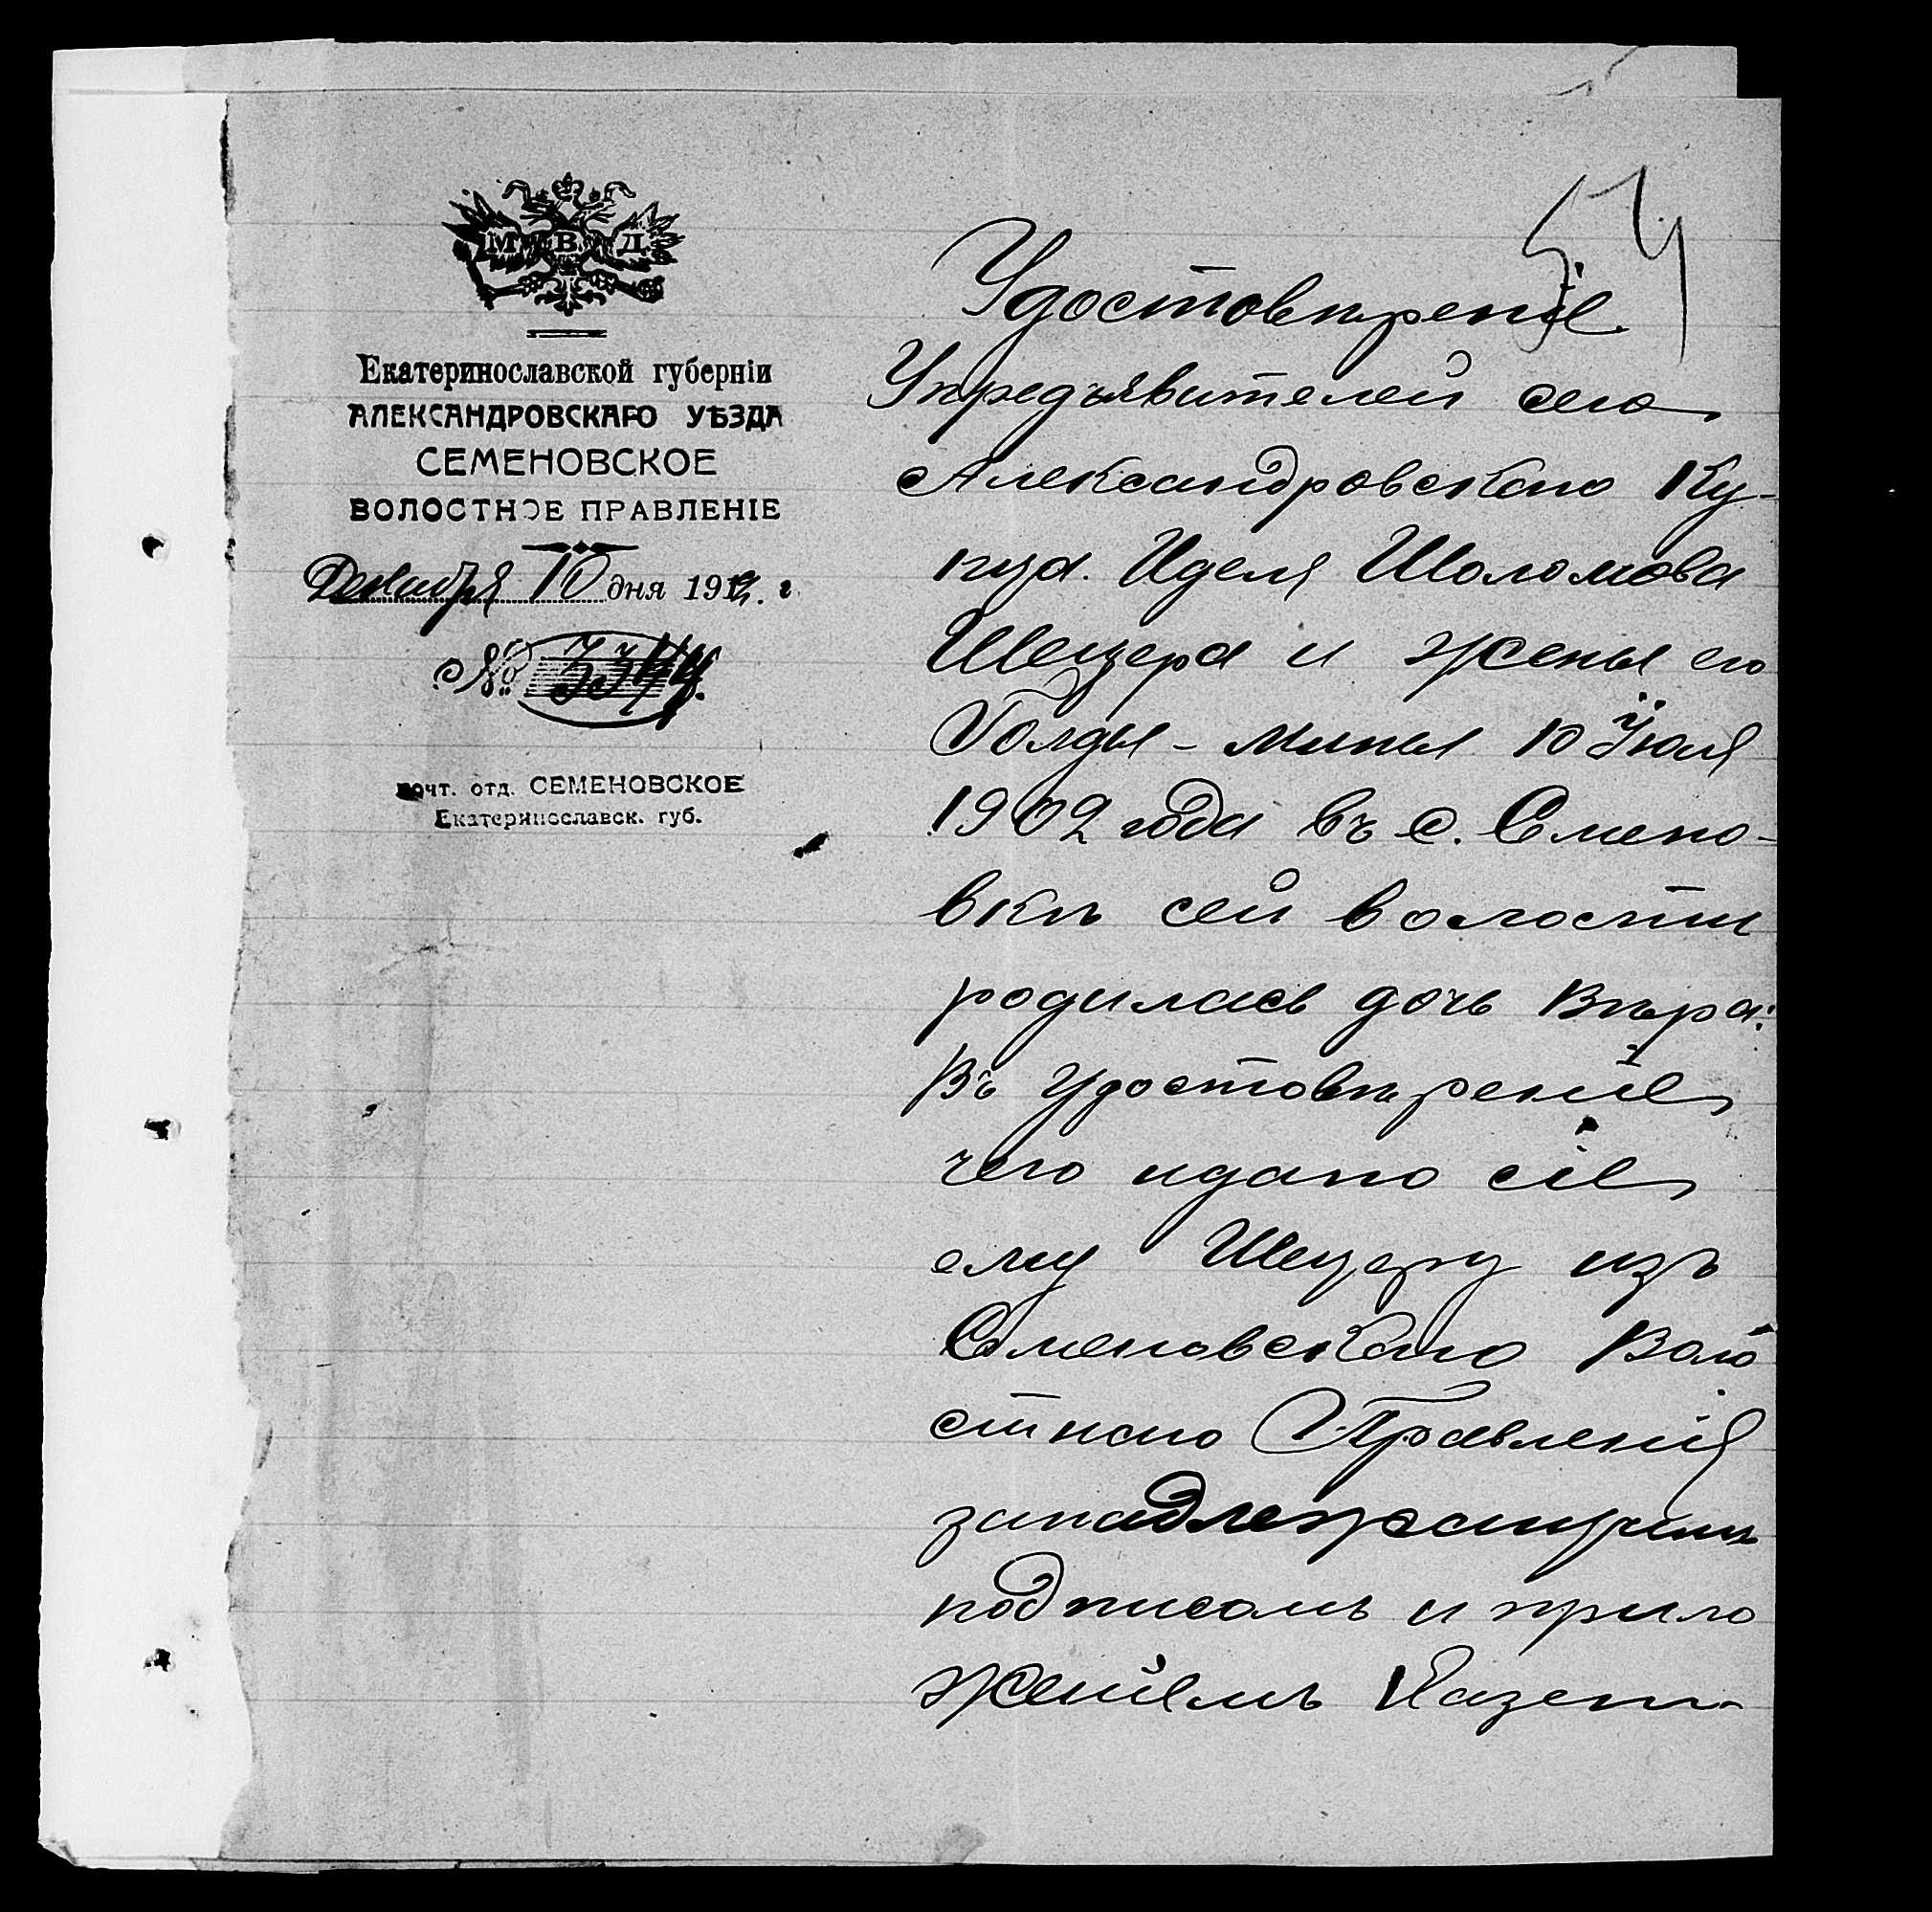 54
М. В. Д.
Екатеринославской губерніи
АЛЕКСАНДРОВСКАГО УѢЗДА
СЕМЕНОВСКОЕ
ВОЛОСТНОЕ ПРАВЛЕНІЕ
Декабря 10 дня 191 г.
№ 3344.
почт. отд. СЕМЕНОВСКОЕ
Екатеринославск. губ.
Удостовѣреніе
У предъявителей сего
Александровскаго Ку-
пца. Иделя Шоломова
Шецера и жены его
Голды - Мины 10 Іюля
1902 года въ с. Семено-
вкѣ сей волости
родилась дочь Вѣра.
Въ удостовѣреніе
чего идано сіе
ему Шецеру изъ
Семеновскаго Воло
стнаго Правленія
за надлежащимъ
подписомъ и прило
женіемъ Казен-